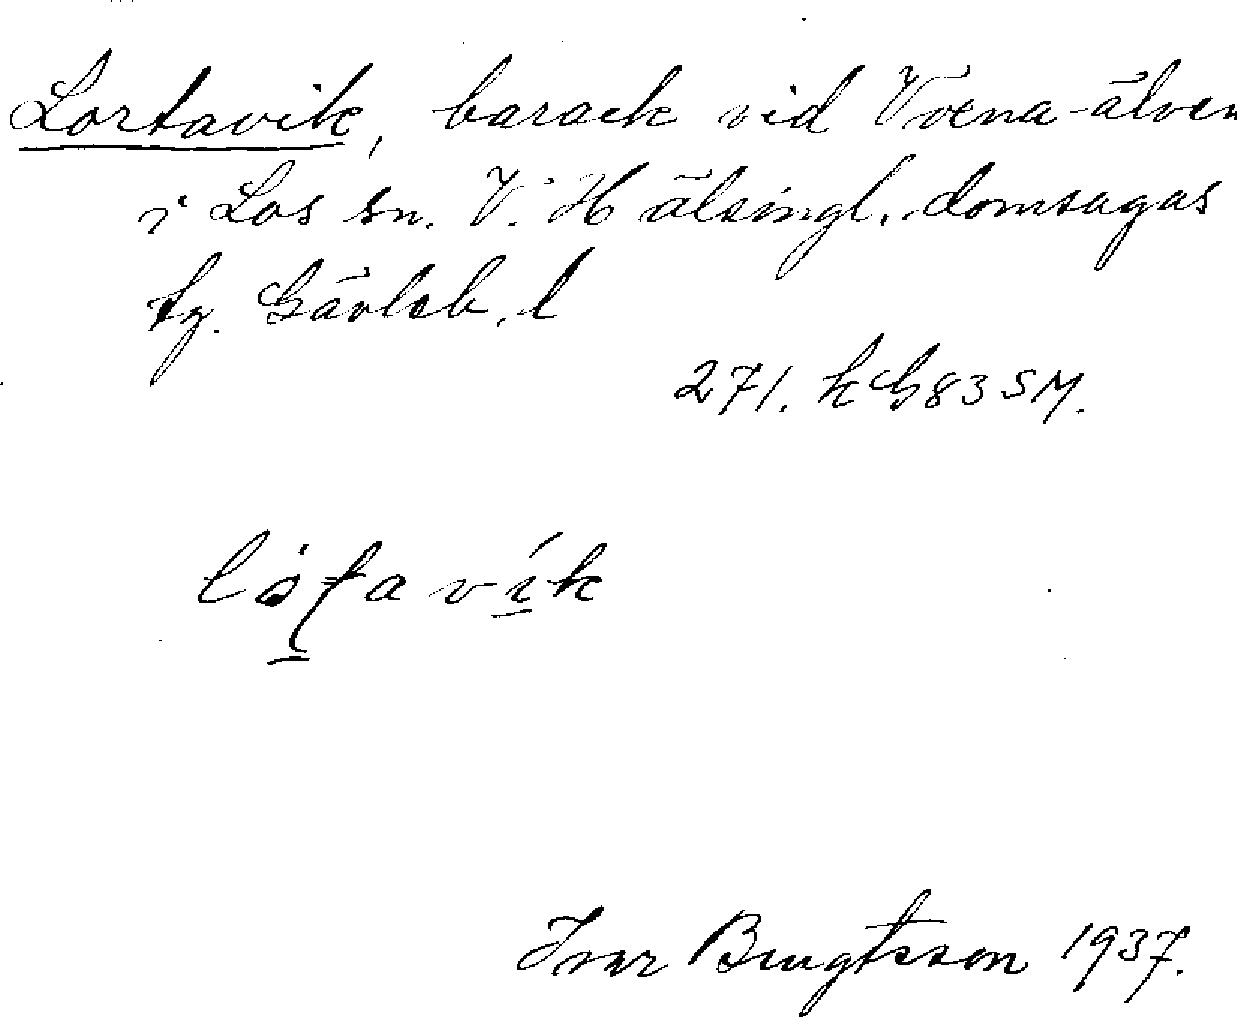 Lortavik, barack vid Voxna-älven
i Los sn. V. Hälsingl. domsagas
tg. Gävleb. l
271. k G83 SM.
Ivar Bengtsson 1937.